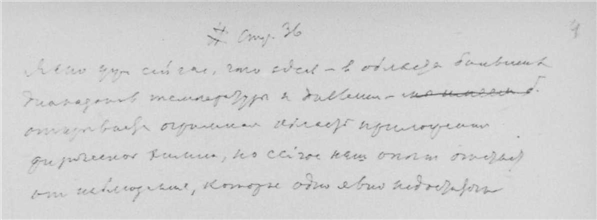 # Стр. 36
4
Ясно уже сейчас, что здесь – в области больших
диапазонов температуры и давления –
открывается огромная область приложения
физической химии, но сейчас наш опыт отстает
от наблюдения, которое одно явно недостаточно